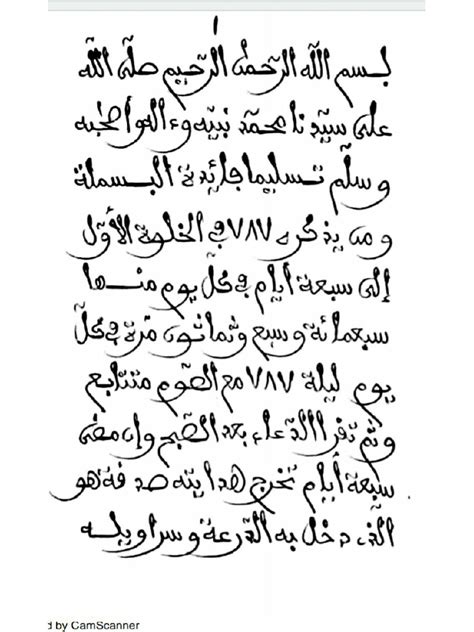 بسم الله الرحمن الرحيم صلى الله
على سيدنا محمد نبيه وءاله وأصحبه
وسلم تسليما فائدة البسملة
ومن يذكره ٧٨٧ في الخلوة الأول
إلى سبعة أيام في كل يوم منها
سبعمائة وسبع وثمانون مرة في كل
يوم ليلة ٧٨٧ مع الصوم متتابع
وثم تقرا الدعاء بعد الصبح وإن مضى
سبعة أيام تخرج هدايته صدفة هو
الذي دخل به الدرعة وسراويله
d by CamScanner